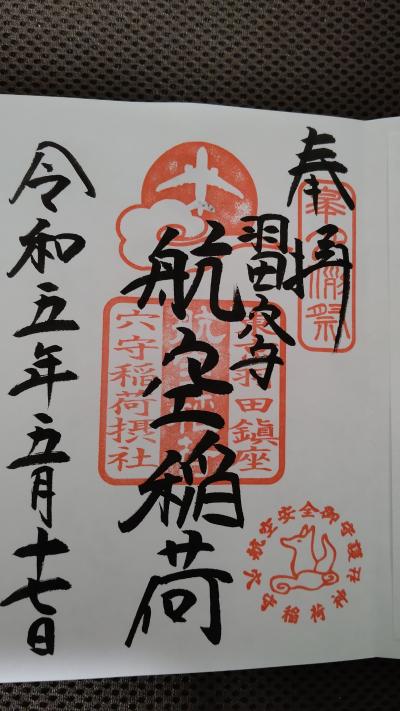 奉拝
羽田穴守
航空稲荷
令和五年五月十七日
羽田鎮座
穴守稲荷摂社
航空安全御守護
穴守稲荷神社